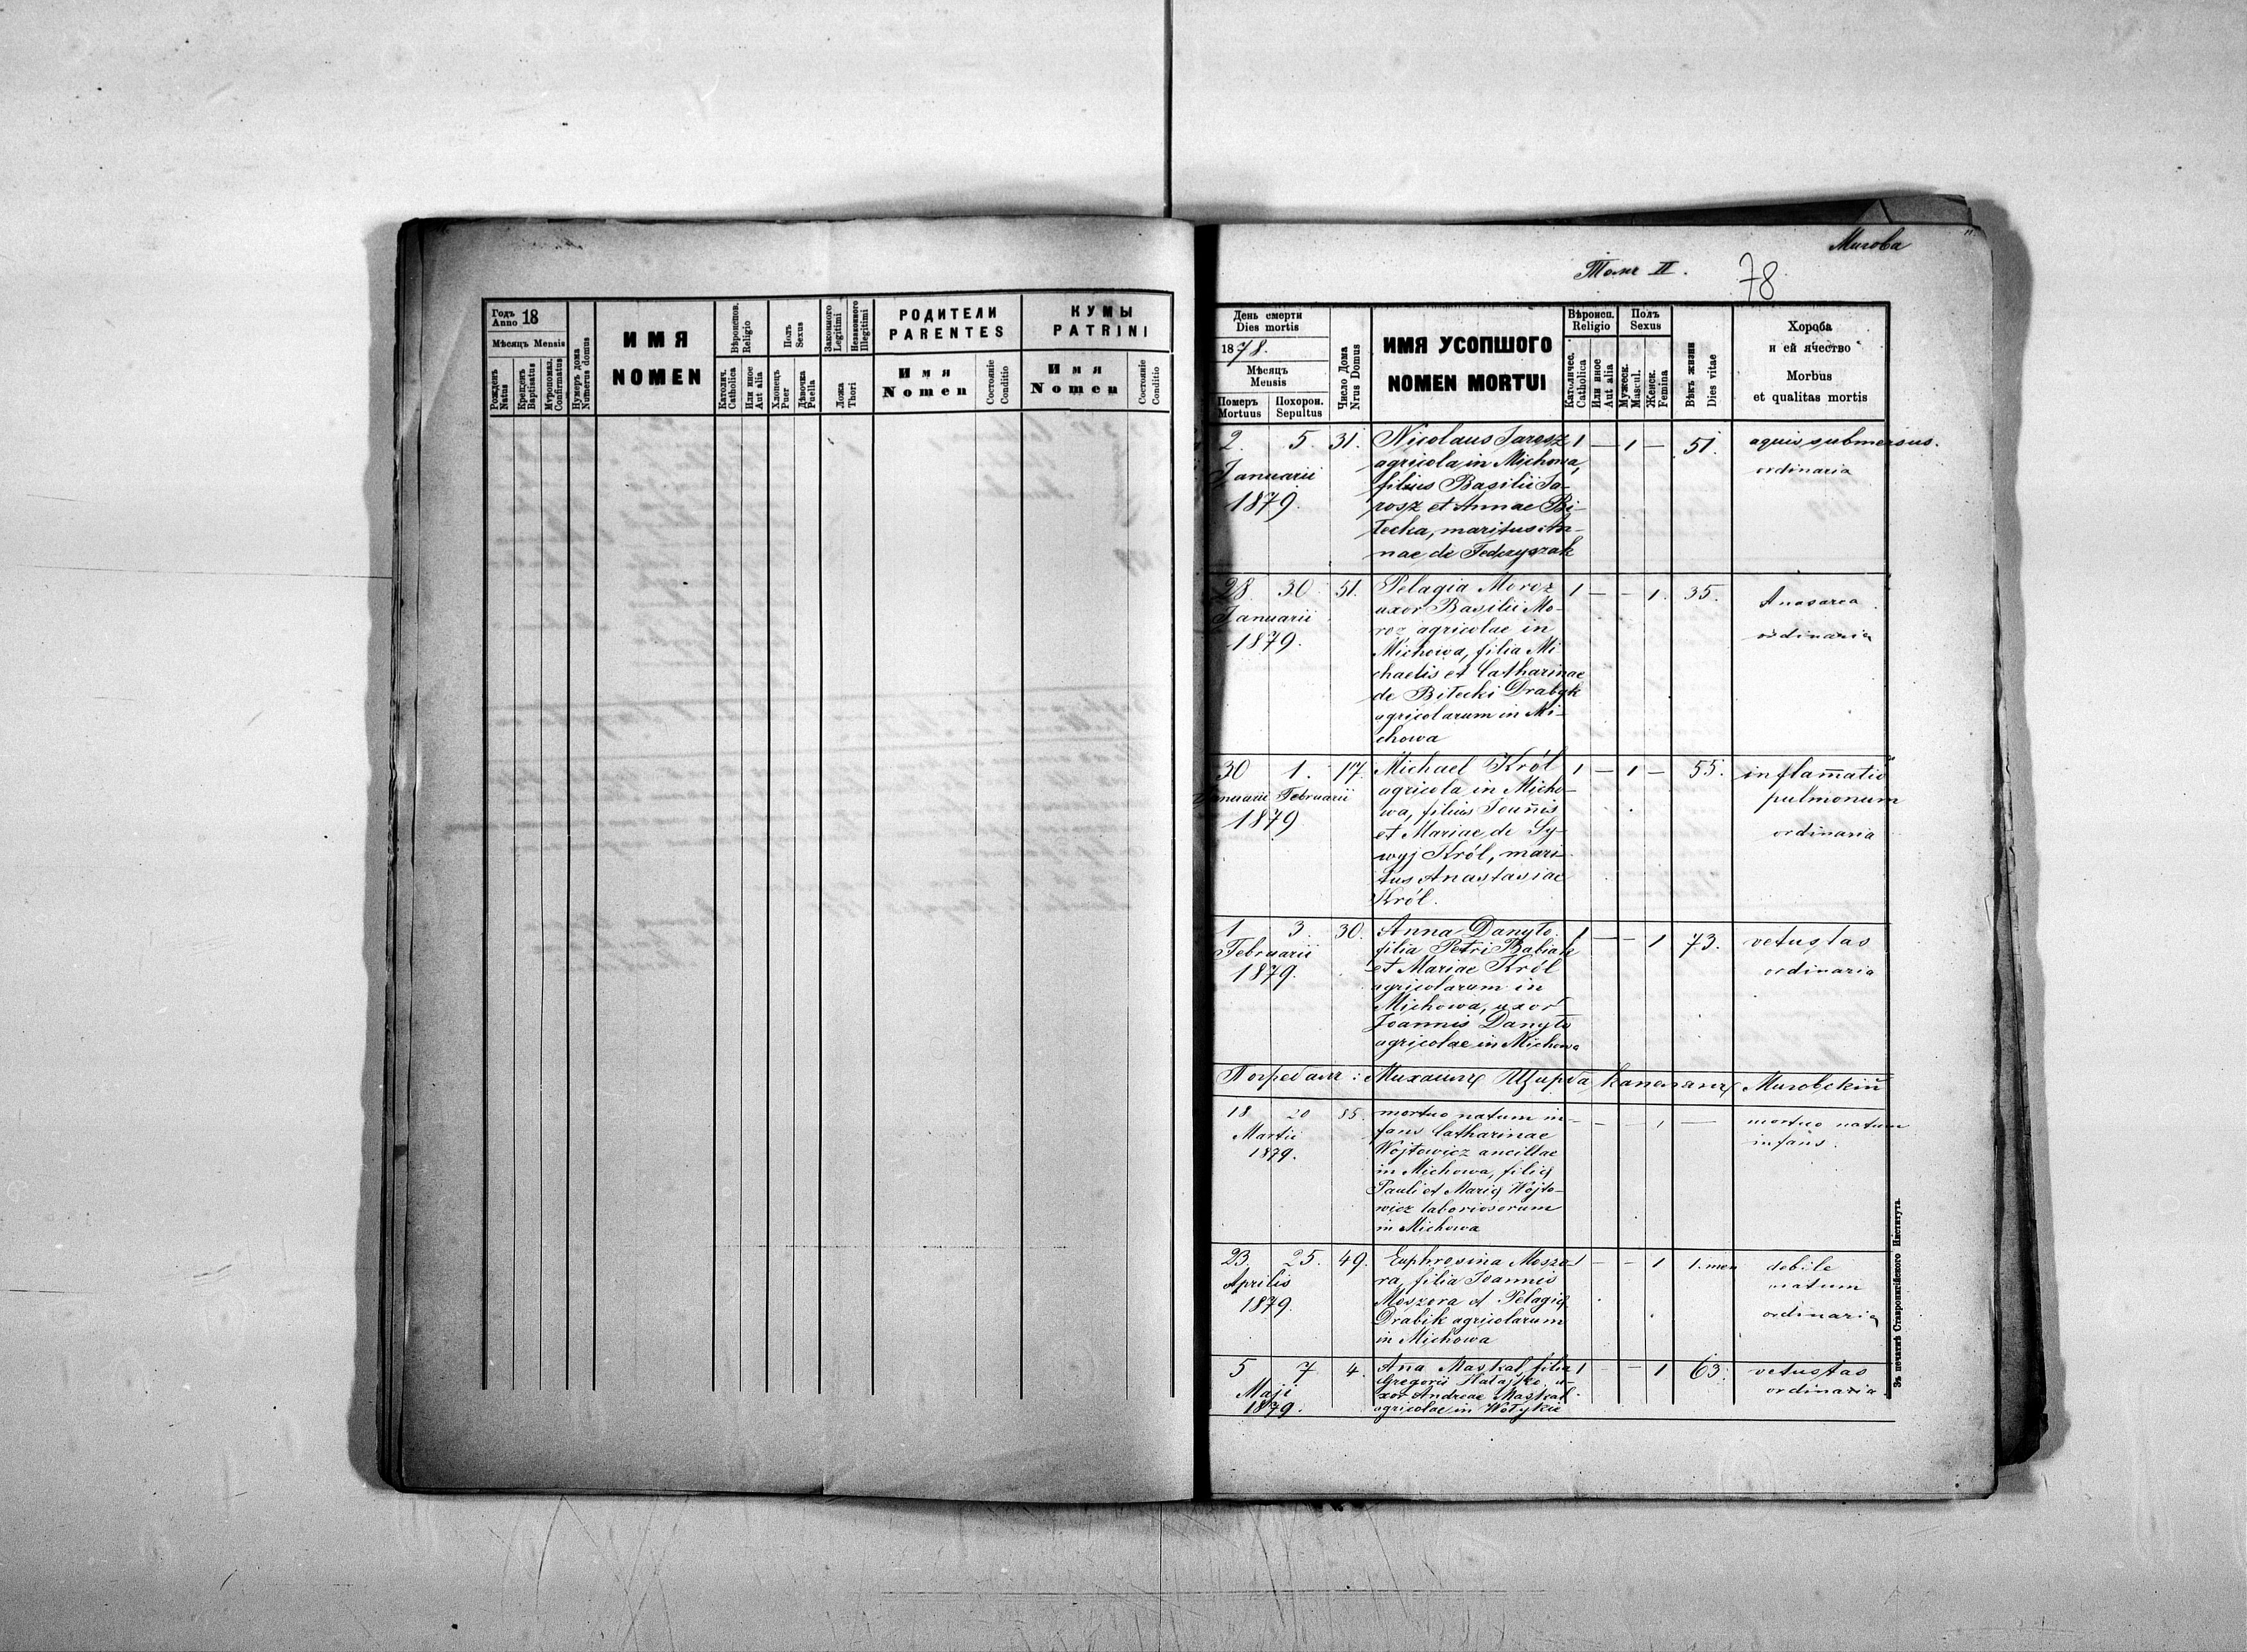 Годъ
Anno 18
Мѣсяцъ Mensis
Рожденъ
Natus
Крещенъ
Baptisatus
Муропомаз.
Confirmatus
Нумеръ дома
Numerus domus
ИМЯ
NOMEN
Вѣроисповѣд.
Religio
Католич.
Catholica
Или иное
Aut alia
Полъ
Sexus
Хлопецъ
Puer
Дѣвочка
Puella
Законного
Legitimi
Незаконного
Illegitimi
Ложа
Thori
РОДИТЕЛИ
PARENTES
Имя
Nomen
Состояніе
Conditio
КУМЫ
PATRINI
Имя
Nomen
Состояніе
Conditio
Мигова
Томъ II.
78
День смерти
Dies mortis
1878.
Мѣсяцъ
Mensis
Померъ
Mortuus
Похорон.
Sepultus
Число Дома
Nrus Domus
ИМЯ УСОПШОГО
NOMEN MORTUI
Вѣроисп.
Religio
Католичес.
Catholica
Или иное
Aut alia
Полъ
Sexus
Мужеск.
Mascul.
Женск.
Femina
Вѣкъ жизни
Dies vitae
Хороба
и ей ячество
Morbus
et qualitas mortis
2. 5. 31. Nicolaus Jarosz 1 — 1 — 51. aquis submersus.
Januarii agricola in Michowa, ordinaria
1879. filius Basilii Ja-
rosz et Annae Bi-
łecka, maritus An-
nae de Fedczyszak
28. 30. 51. Pelagia Moroz 1 — — 1. 35. Anasarca
Januarii uxor Basilii Mo- ordinaria
1879. roz agricolae in
Michowa, filia Mi-
chaelis et Catharinae
de Biłecki Drabyk
agricolarum in Mi-
chowa
30 1. 17. Michael Król 1 — 1 — 55. inflam̄atio
Januarii Februarii agricola in Micho- pulmonum
1879 wa, filius Joan̄is ordinaria
et Mariae de Sy-
wyj Król, mari-
tus Anastasiae
Król.
1 3. 30. Anna Danyło 1 — — 1 73. vetustas
Februarii filia Petri Babiak ordinaria
1879. et Mariae Król
agricolarum in
Michowa, uxor
Joannis Danyło
agricolae in Michowa
Погребалъ: Михаилъ Щирба Капеланъ Миговскій
18 20 85. mortuo natum in- — — 1 — mortuo natum
Martii fans Catharinae infans.
1879. Wojtowicz ancillae
in Michowa, filię
Pauli et Marię Wojto-
wicz laboriosorum
in Michowa
23. 25. 49. Euphrosina Moszo- 1 — — 1 1. men debile
Aprilis ra, filia Joannis natum
1879. Moszora et Pelagię ordinaria
Drabik agricolarum
in Michowa
5 7 4. Ana Maskal filia 1 — — 1 63. vetustas
Maji Gregorii Hatajko u- ordinaria
1879. xor Andreae Maskal
agricolae in Wołykie
Зъ печатнѣ Ставропигійского Института.